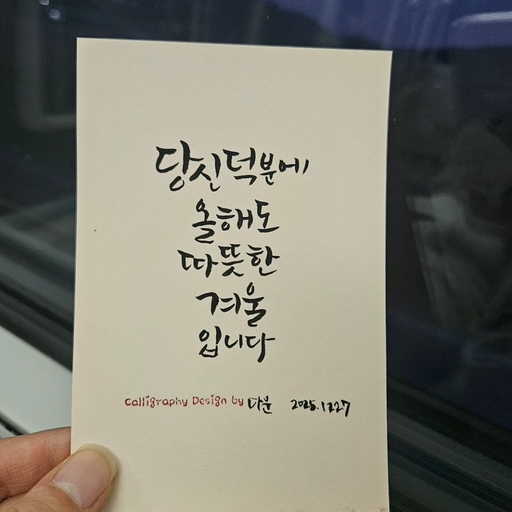 당신덕분에
올해도
따뜻한
겨울
입니다
Calligraphy Design by 다운 2025.1227